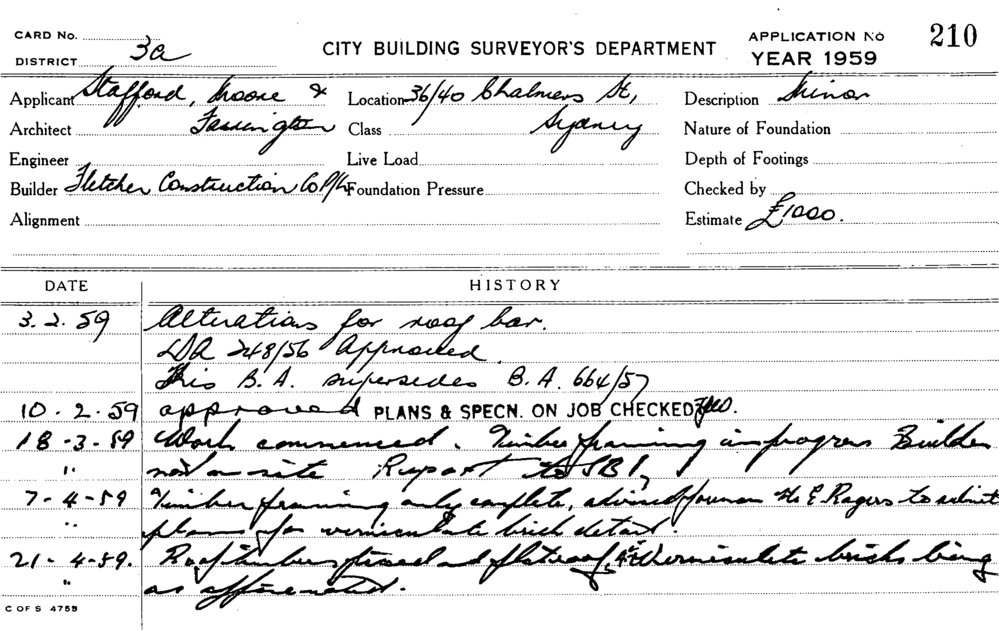 CARD No.
DISTRICT 3a
CITY BUILDING SURVEYOR'S DEPARTMENT
APPLICATION No 210
YEAR 1959
Applicant Stafford, Moore &
Architect Farrington
Engineer
Builder Fletcher Construction Co P/L
Alignment
Location 36/40 Chalmers St,
Class Sydney
Live Load
Foundation Pressure
Description Minor
Nature of Foundation
Depth of Footings
Checked by
Estimate £1000.
DATE HISTORY
3.2.59 Alterations for roof bar.
DA 248/56 Approved.
This B.A. supersedes B.A. 664/57
10.2.59 approved PLANS & SPECN. ON JOB CHECKED
18-3-59 Work commenced. Timber framing in progress Builder
" not on site Report to SBI
7-4-59 Timber framing only complete, advised E. Rogers to submit
" plans for vermiculite brick detail.
21-4-59. Roof timbers and flat roof, Vermiculite bricks being
" as
C OF S 4755